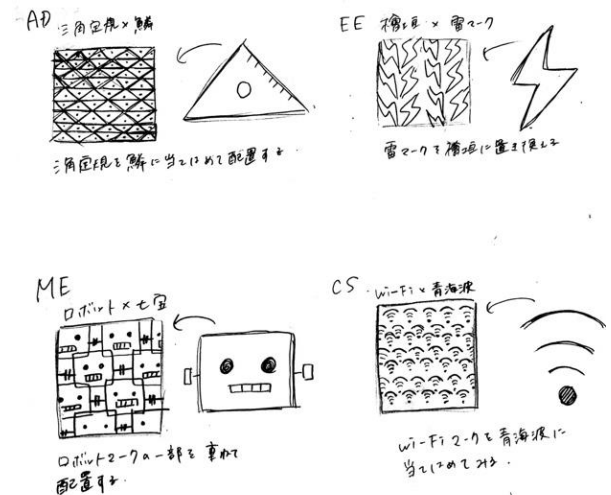 AD
三角定規×鱗
三角定規を鱗に当てはめて配置する
EE 檜垣×雷マーク
雷マークを檜垣に置き換える
ME
ロボット×七宝
ロボットマークの一部を重ねて
配置する.
CS
Wi-Fi×青海波
Wi-Fiマークを青海波に
当てはめてみる.